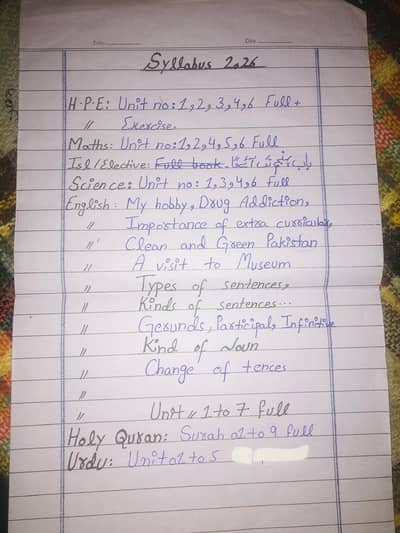 Date: Date
Syllabus 2026
H.P.E: Unit no: 1,2,3,4,6 Full +
" Exercise.
Maths: Unit no: 1,2,4,5,6 Full
Isl/Elective: Full book.
Science: Unit no: 1,3,4,6 Full
English: My hobby, Drug Addiction,
" Importance of extra curricular,
" Clean and Green Pakistan
" A visit to Museum
" Types of sentences,
" Kinds of sentences...
" Gerunds, Participal, Infinitive
" Kind of Noun
" Change of tences
"
" Unit " 1 to 7 full
Holy Quran: Surah 01 to 9 full
Urdu: Unit 01 to 5